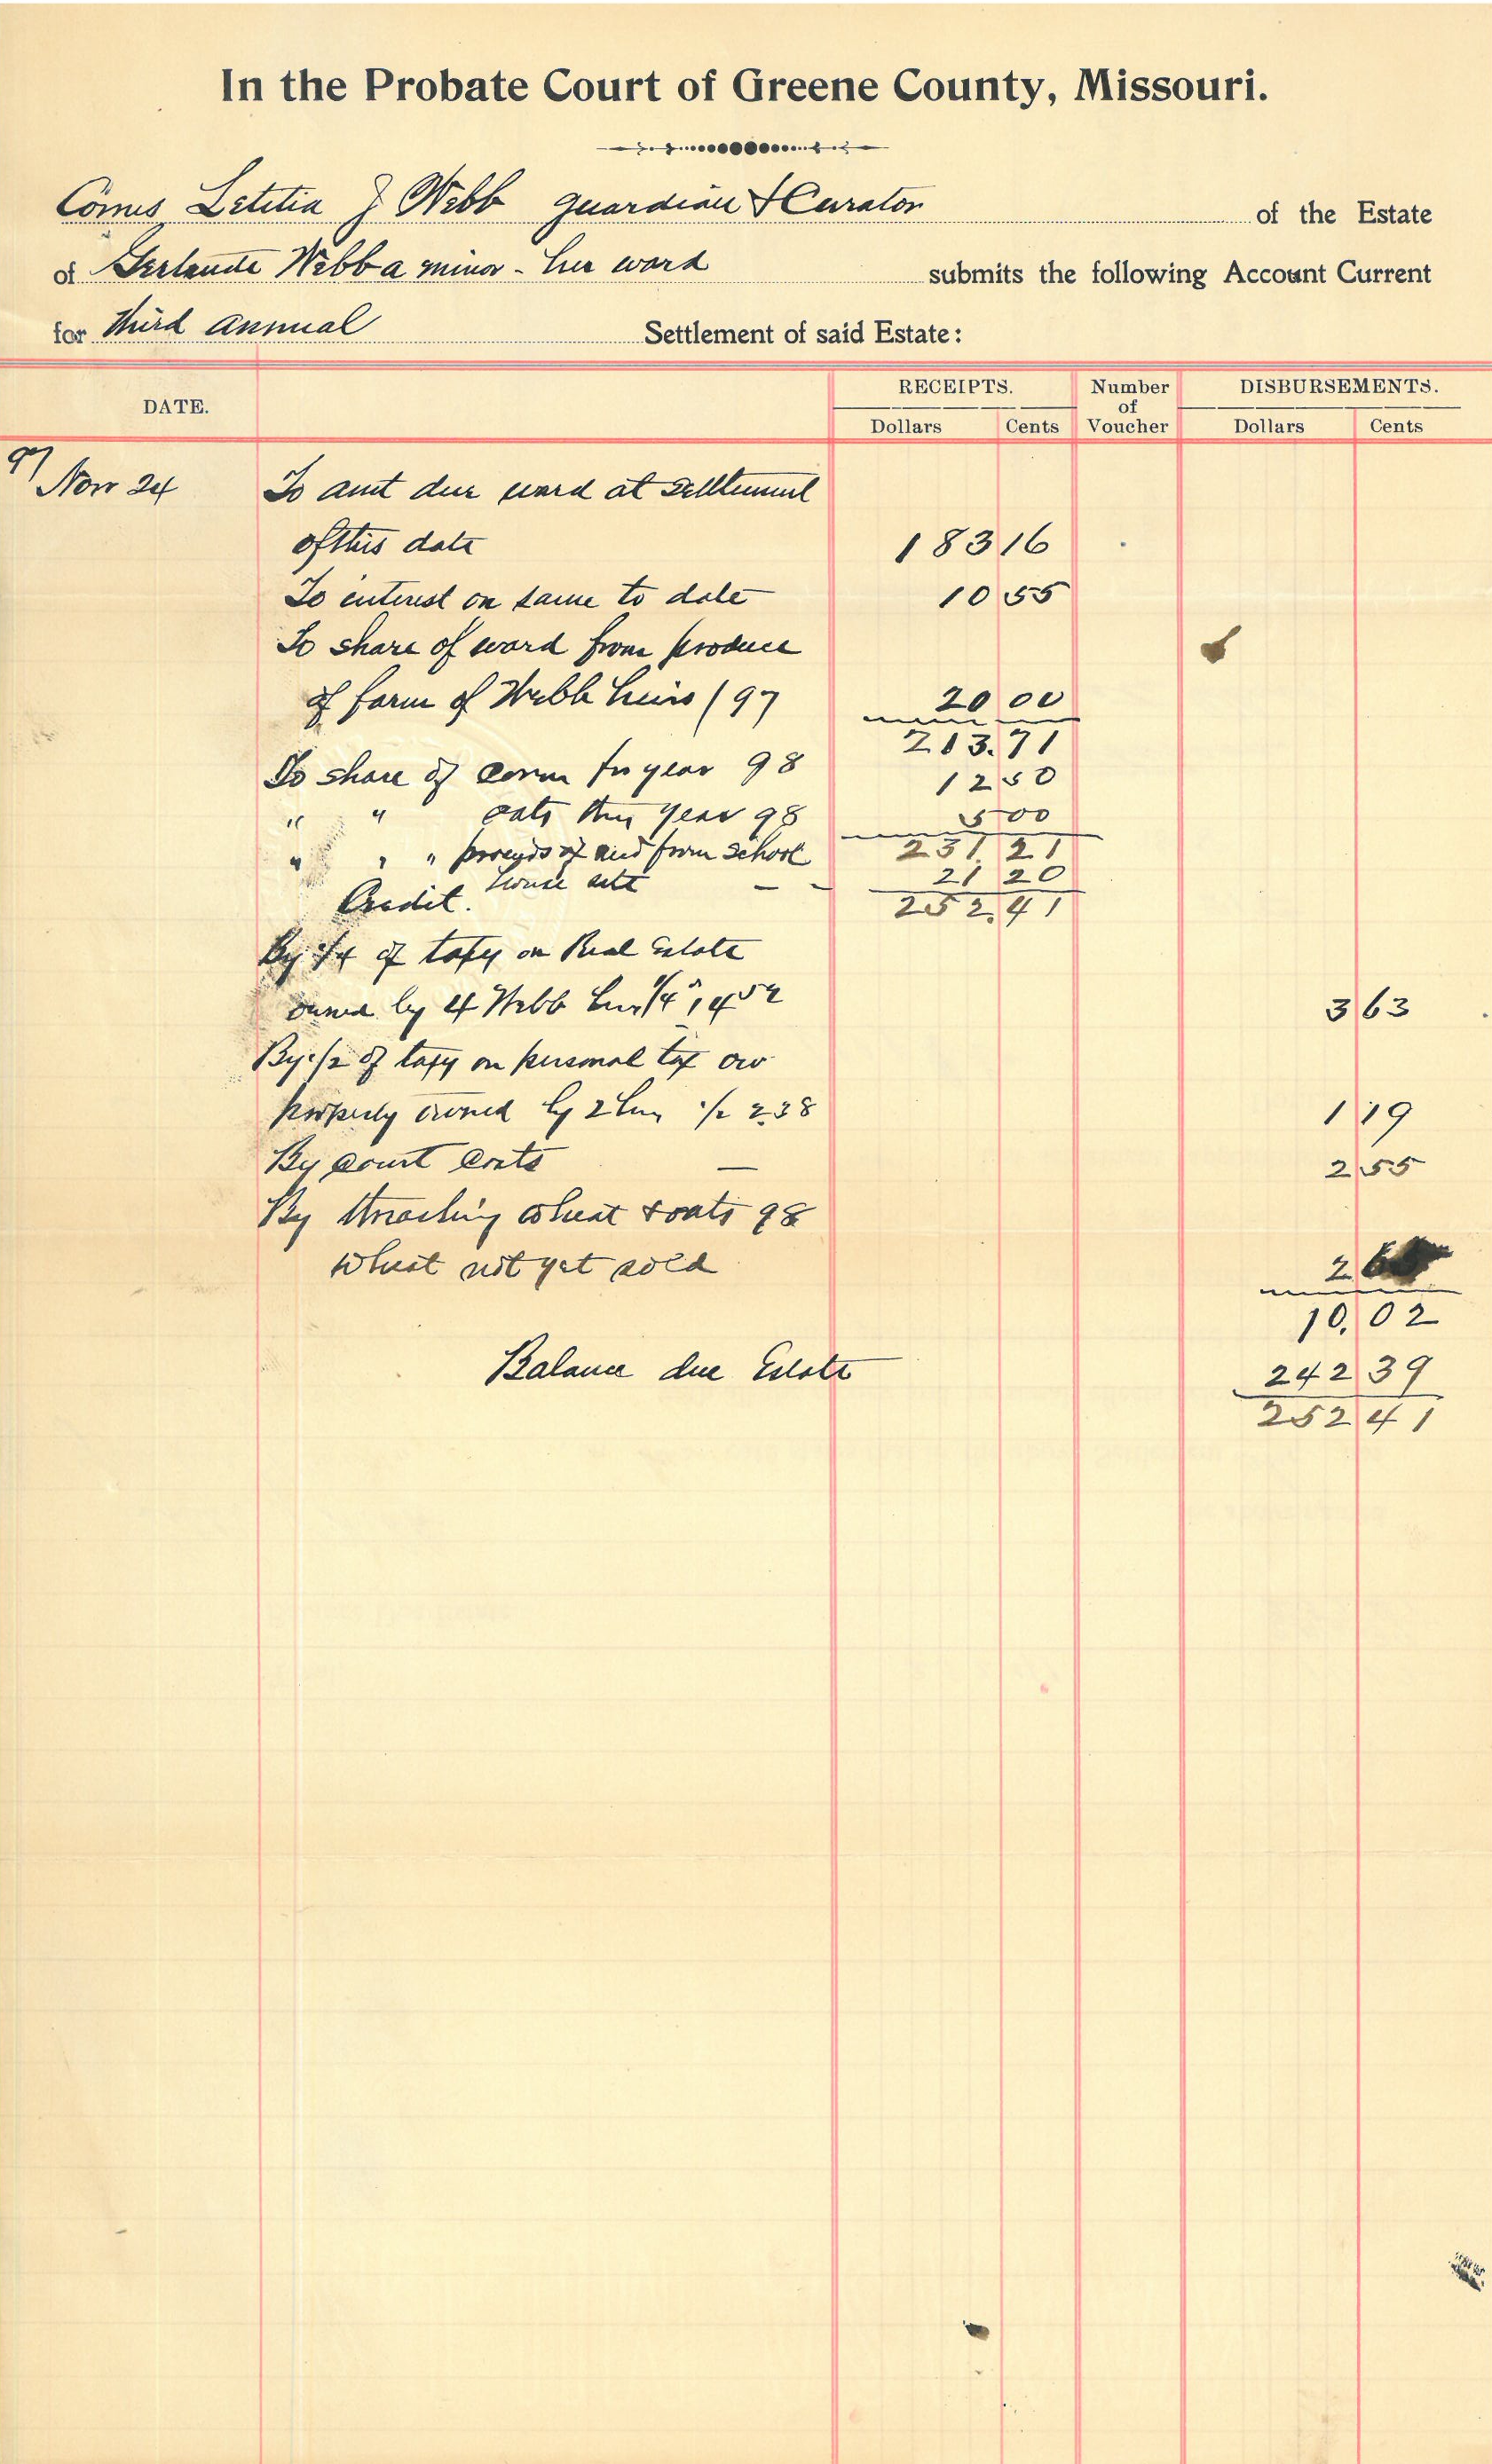 In the Probate Court of Greene County, Missouri.
Comes Letitia J Webb guardian & Curator of the Estate
of Gertrude Webb a minor - her ward submits the following Account Current
for third annual Settlement of said Estate:
DATE. RECEIPTS. Number of Voucher DISBURSEMENTS.
Dollars Cents Dollars Cents
97
Nov 24 To amt due ward at settlement
of this date 183 16
To interest on same to date 10 55
To share of ward from produce
of farm of Webb heirs (97 20 00
213.71
To share of corn for year 98 12 50
" " oats this year 98 5 00
231.21
" " " proceeds of and from School
house site — - 21 20
Credit. 252.41
By 1/4 of taxes on Real Estate
owned by 4 Webb heirs 1/4 14 52 3 63
By 1/2 of taxes on personal tax
property owned by 2 1/2 2.38 1 19
By court costs — 2 55
By thrashing wheat & oats 98
wheat not yet sold 2 6
10.02
Balance due Estate 242 39
252 41